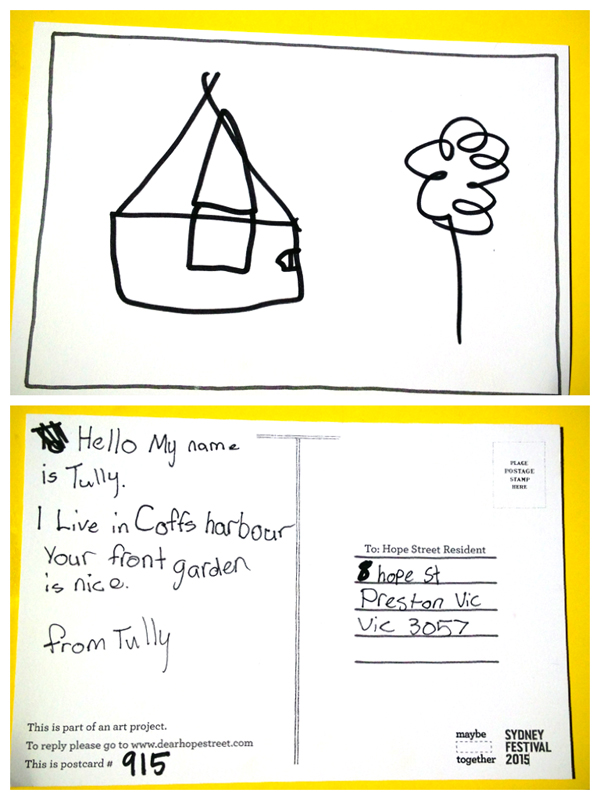 Hello My name
is Tully.
I Live in Coffs harbour
Your front garden
is nice.
from Tully
This is part of an art project.
To reply please go to www.dearhopestreet.com
This is postcard # 915
PLACE
POSTAGE
STAMP
HERE
To: Hope Street Resident
8 hope St
Preston Vic
Vic 3057
maybe
together
SYDNEY
FESTIVAL
2015